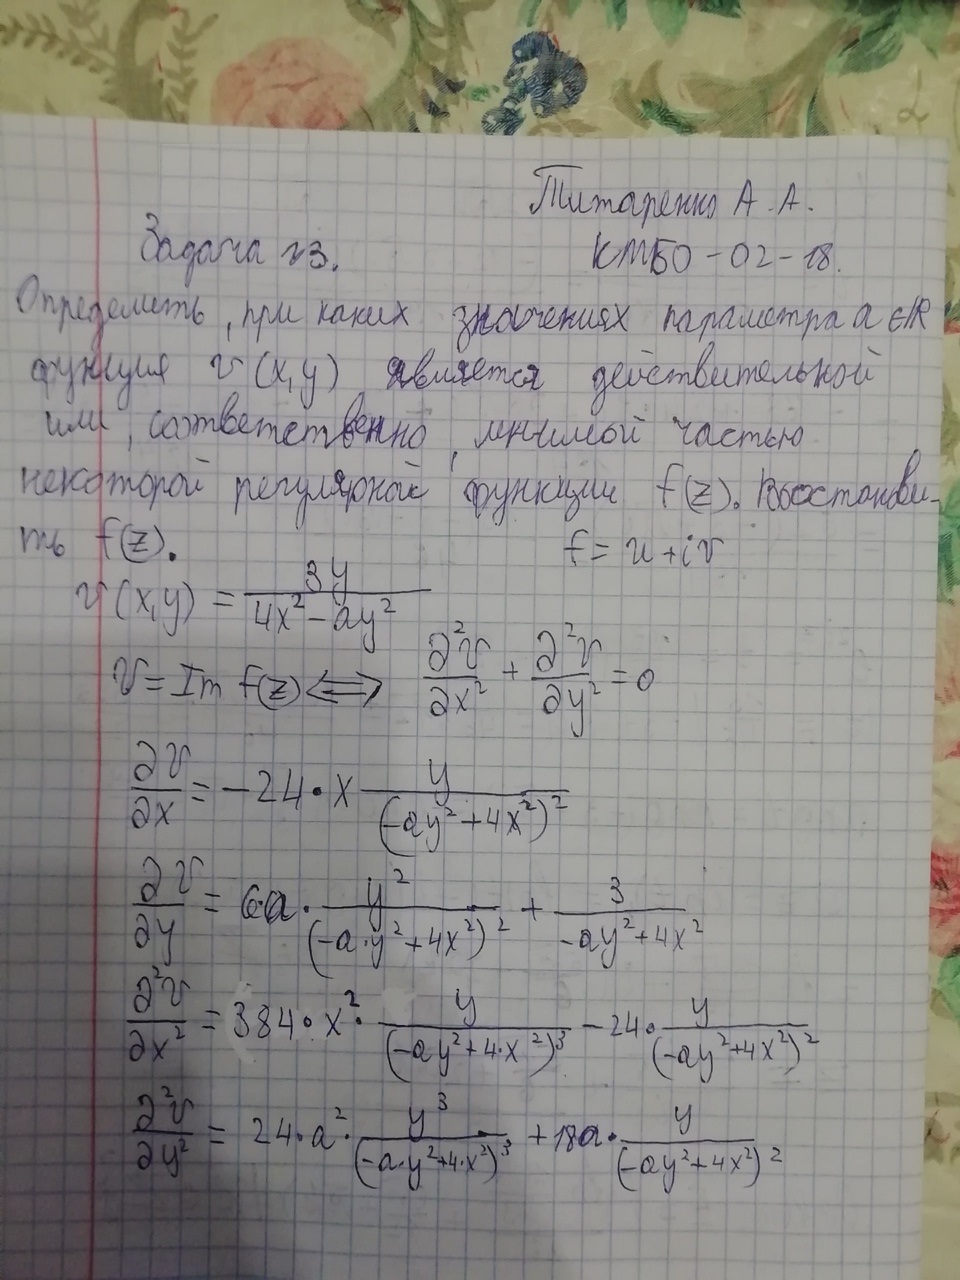 Титаренко А.А.
Задача №3.
КМБО-02-18.
Определить, при каких значениях параметра a∈ℝ
функция v(x,y) является действительной
или, соответственно, мнимой частью
некоторой регулярной функции f(z). Восстанови-
ть f(z).
f = u+iv
v(x,y) = 3y/(4x²-ay²)
v = Im f(z) ⟺ ∂²v/∂x² + ∂²v/∂y² = 0
∂v/∂x = -24·x y/(-ay²+4x²)²
∂v/∂y = 6a· y²/(-a·y²+4x²)² + 3/(-ay²+4x²)
∂²v/∂x² = 384·x²· y/(-ay²+4·x²)³ - 24· y/(-ay²+4x²)²
∂²v/∂y² = 24·a²· y³/(-a·y²+4·x²)³ + 18a· y/(-ay²+4x²)²